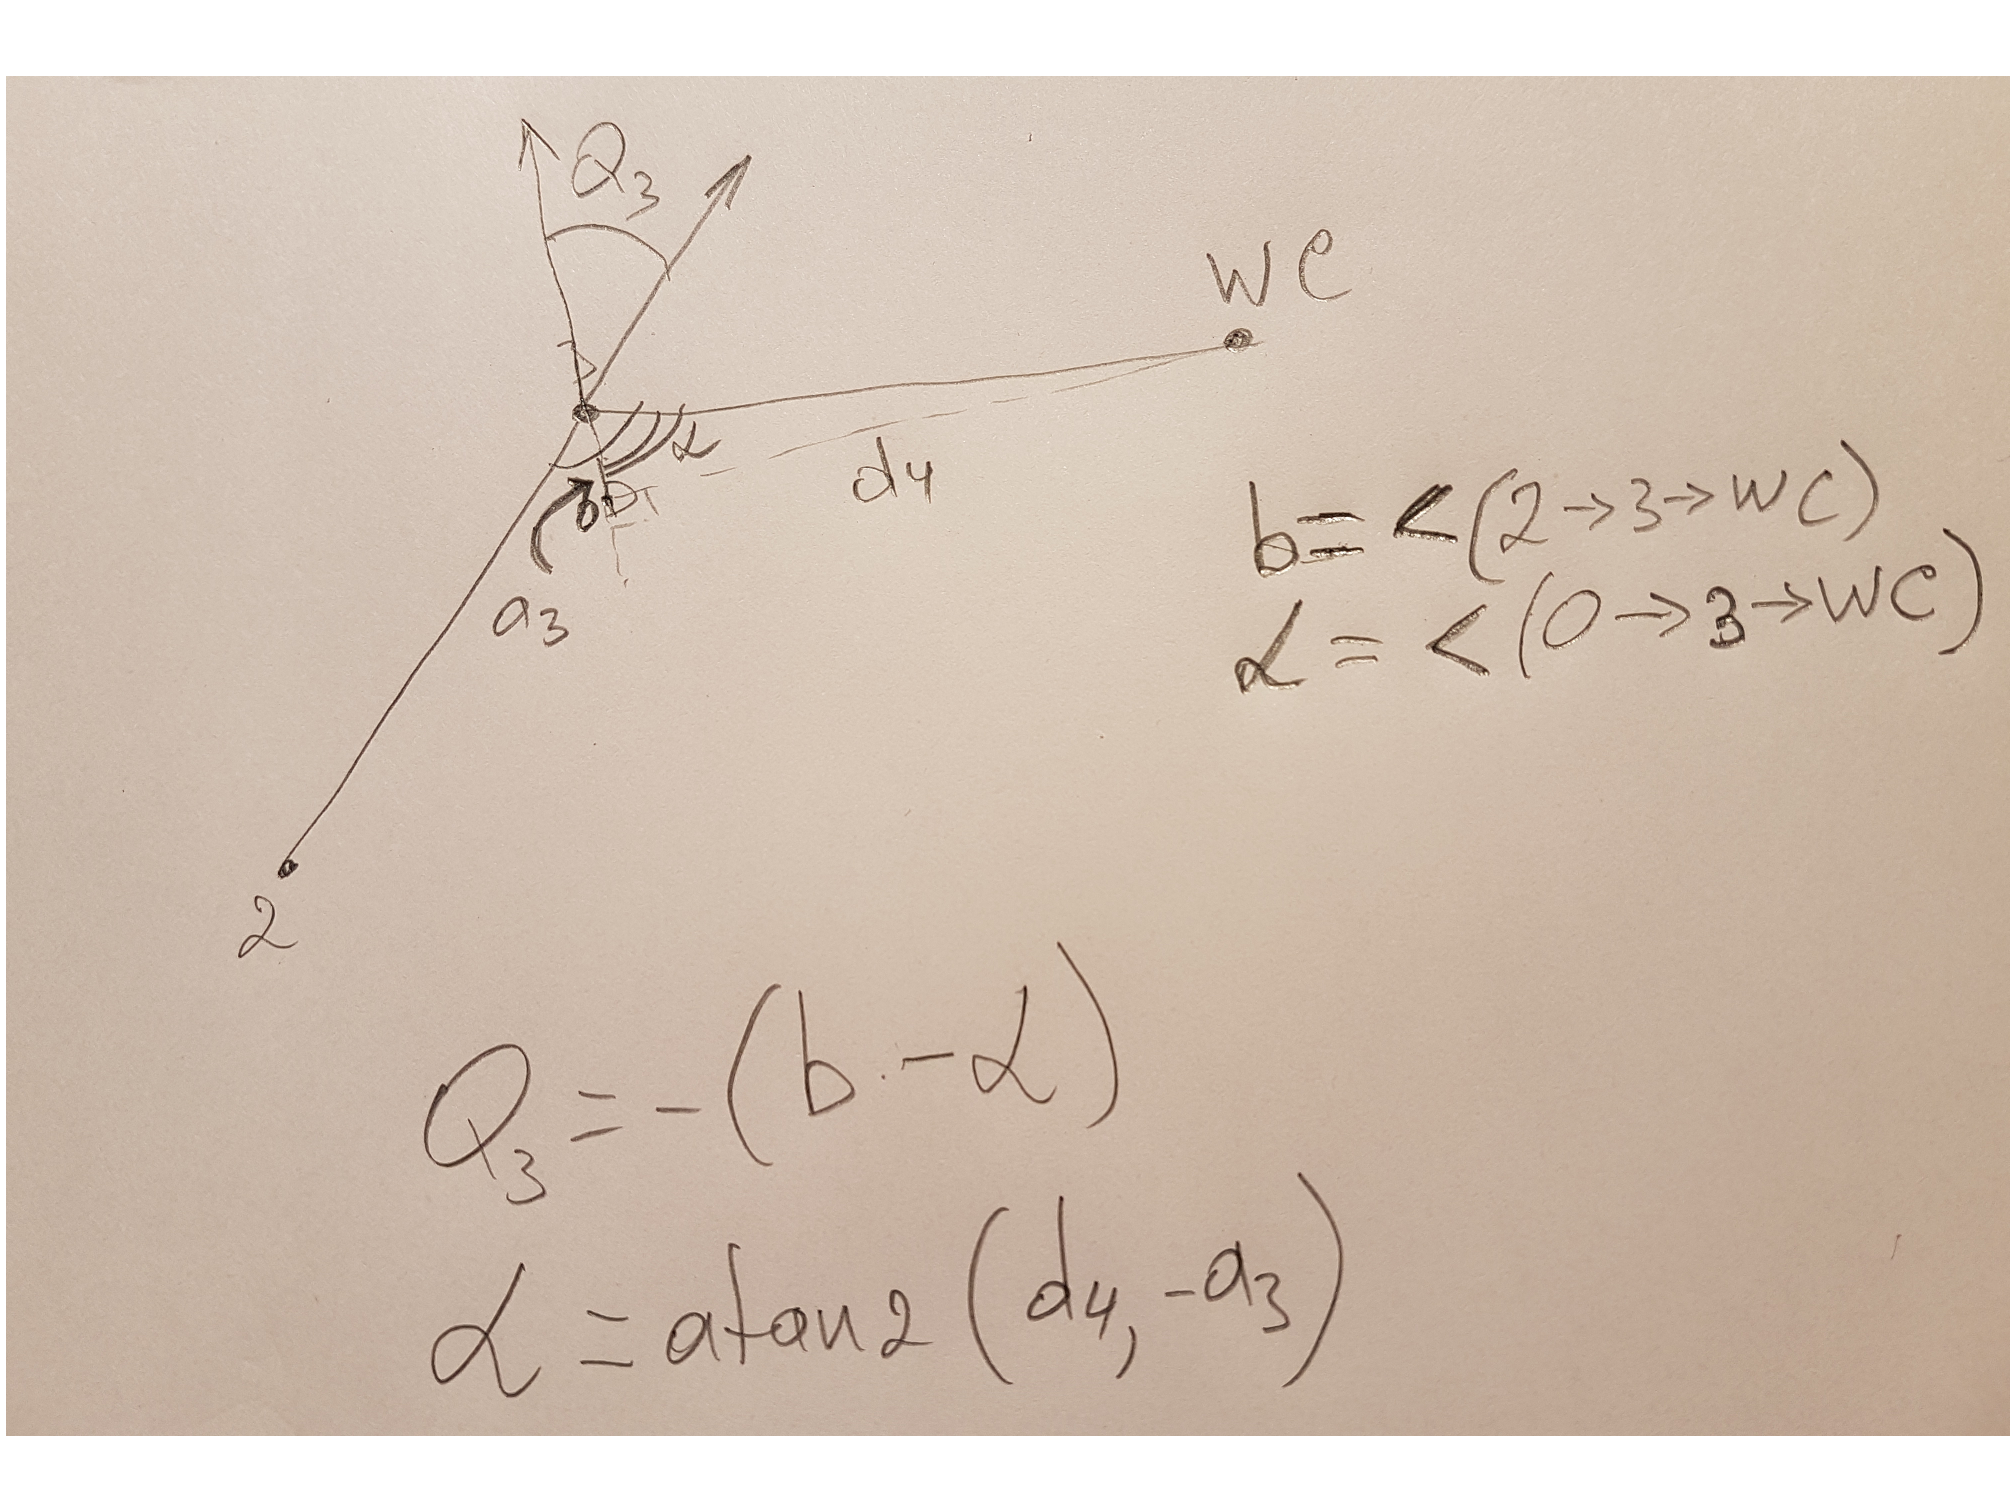 Q₃
WC
3
α
d4
b
a3
2
b = <(2→3→WC)
α = <(0→3→WC)
Q₃ = -(b - α)
α = atan2(d4, -a3)